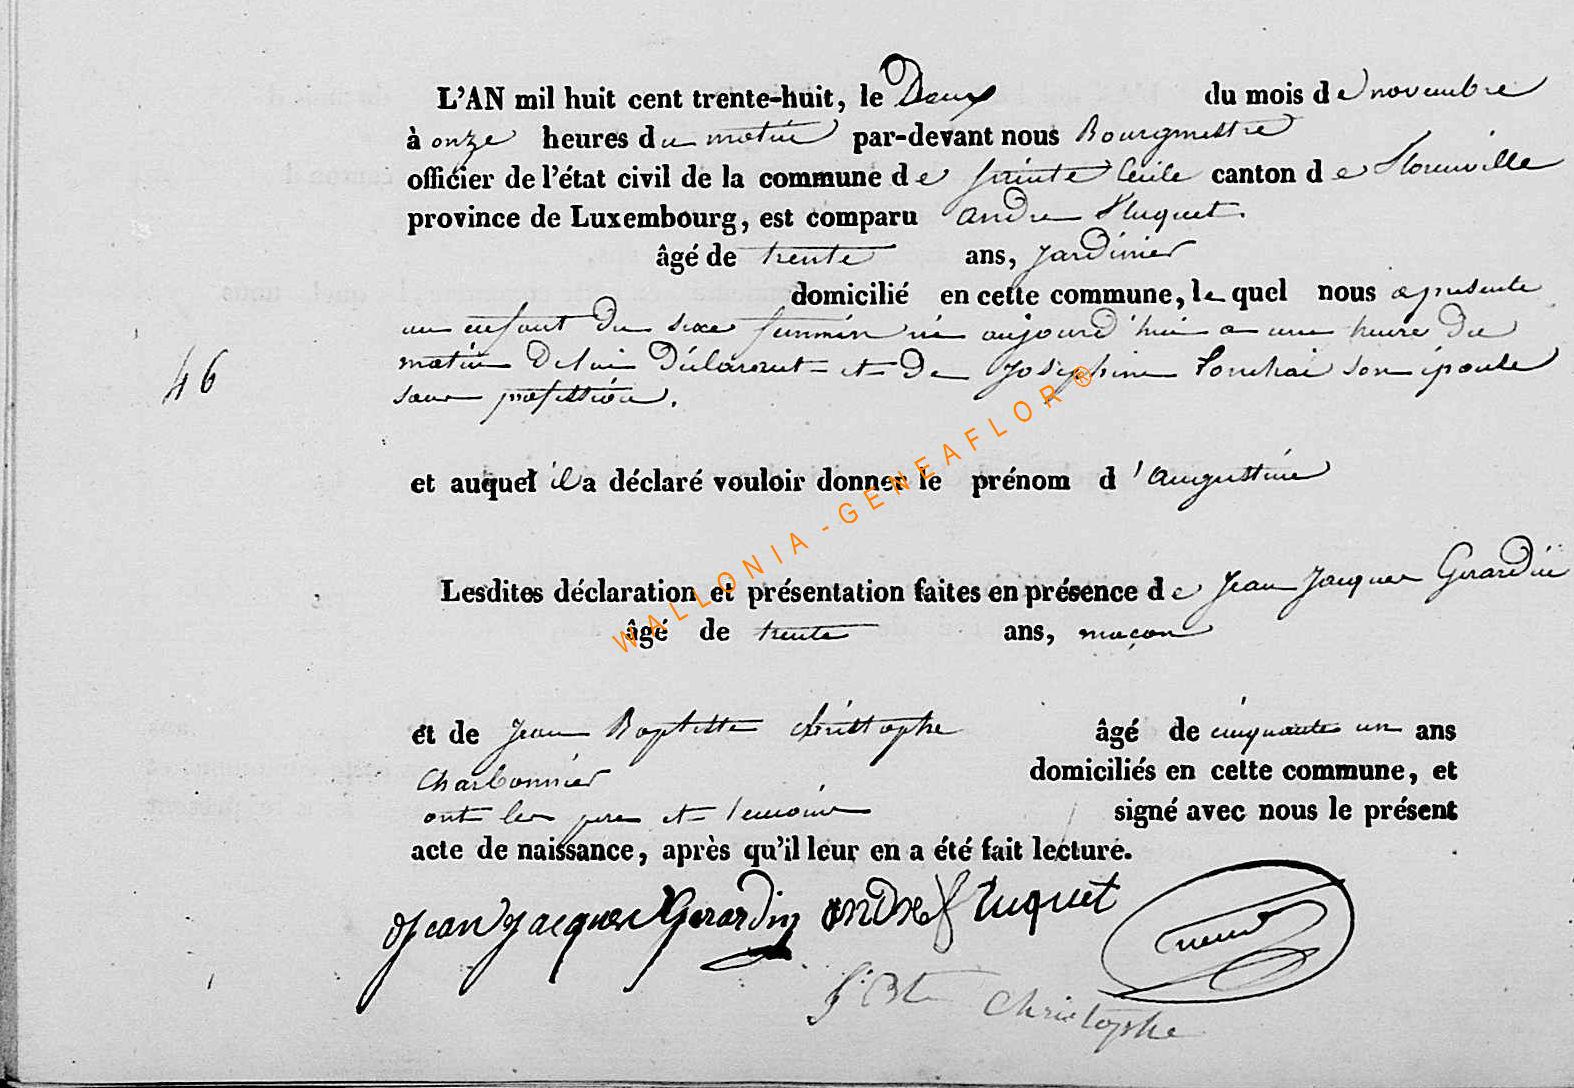 L'AN mil huit cent trente-huit, le Deux du mois de novembre
à onze heures du matin par-devant nous Bourgmestre
officier de l'état civil de la commune de Sainte Cécile canton de Florenville
province de Luxembourg, est comparu andre
âgé de trente ans, jardinier
domicilié en cette commune, le quel nous a présenté
un enfant du sexe femmin né aujourd'hui a une heure du
46
matin De lui Déclarant et De Josephine son épouse
sans profession.
et auquel il a déclaré vouloir donner le prénom d'augustine
Lesdites déclaration et présentation faites en présence de Jean Jacques Gerardin
âgé de trente ans, maçon
et de Jean Baptiste christophe âgé de cinquante un ans
Charbonnier domiciliés en cette commune, et
ont les pere et temoins signé avec nous le présent
acte de naissance, après qu'il leur en a été fait lecture.
Jean jacques Gerardin andre
j. Bte Christophe
WALLONIA - GENEAFLOR®